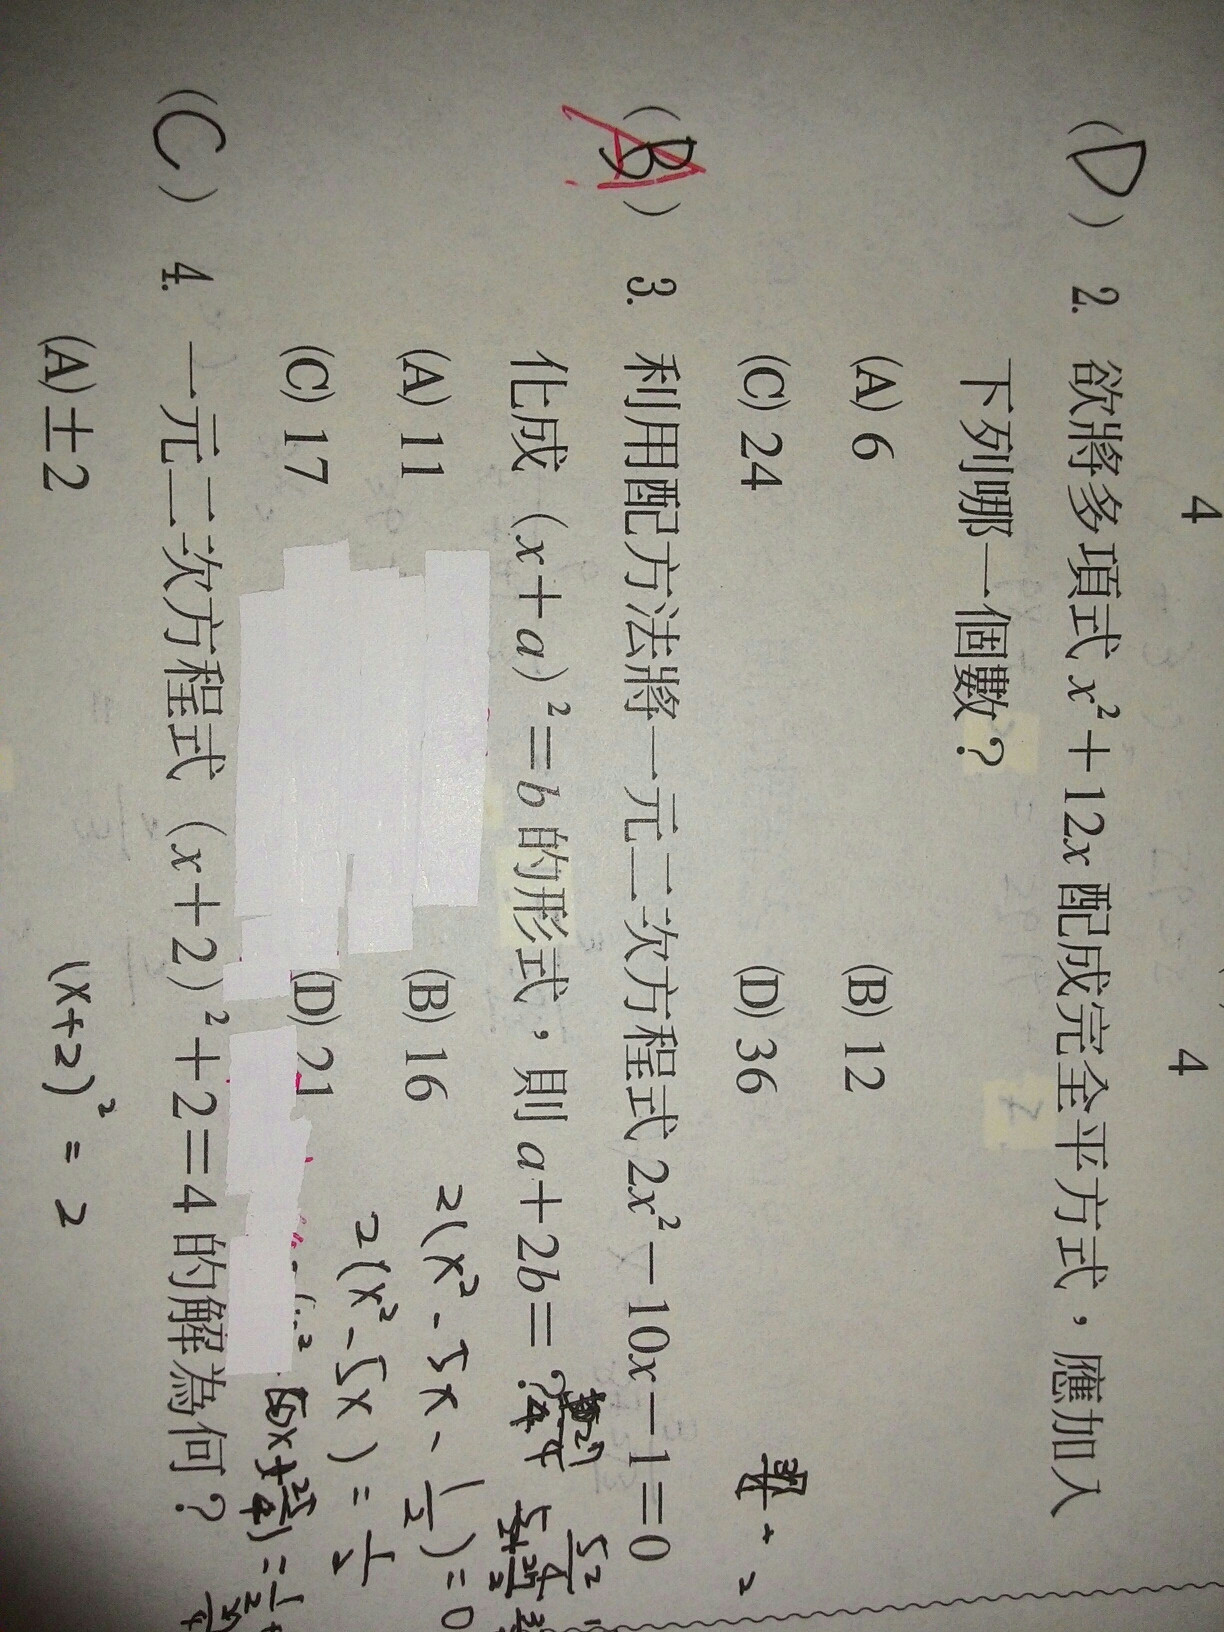 4 4
(D) 2. 欲將多項式 x²+12x 配成完全平方式,應加入
下列哪一個數?
(A) 6 (B) 12
(C) 24 (D) 36
(B) A 3. 利用配方法將一元二次方程式 2x²-10x-1=0
化成 (x+a)²=b 的形式,則 a+2b=?
(A) 11 (B) 16
2(x²-5x-1/2)=0
(C) 17 (D) 21
2(x²-5x)=1/2
(C) 4. 一元二次方程式 (x+2)²+2=4 的解為何?
(A) ±2
(x+2)²=2